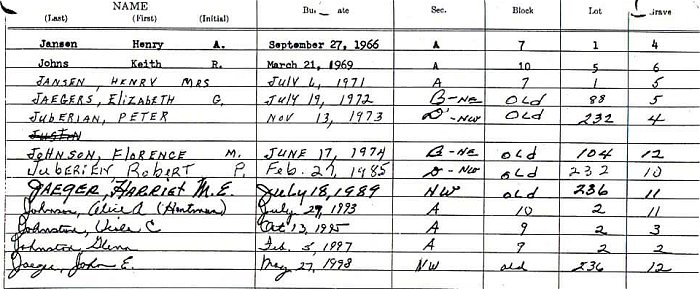 NAME
(Last) (First) (Initial) Bu ate Sec. Block Lot Grave
Jansen Henry A. September 27, 1966 A 7 1 4
Johns Keith R. March 21, 1969 A 10 5 6
JANSEN, HENRY MRS JULY 6, 1971 A 7 1 5
JAEGERS, ELIZABETH G. JULY 19, 1972 B-NE OLD 88 5
JUBERIAN, PETER NOV 13, 1973 D-NW OLD 232 4
JUSTON
JOHNSON, FLORENCE M. JUNE 17, 1974 B-NE OLD 104 12
JUBERIEN ROBERT P. Feb. 27, 1985 D-NW OLD 232 10
JAEGER, HARRIET M.E. July 18, 1989 NW old 236 11
Johnson, Alice A (Hintman) July 29, 1993 A 10 2 11
Johnston, C Oct 13, 1995 A 9 2 3
Johnston Glenn Feb. 5, 1997 A 9 2 2
Jaeger, John E. May 27, 1998 NW old 236 12